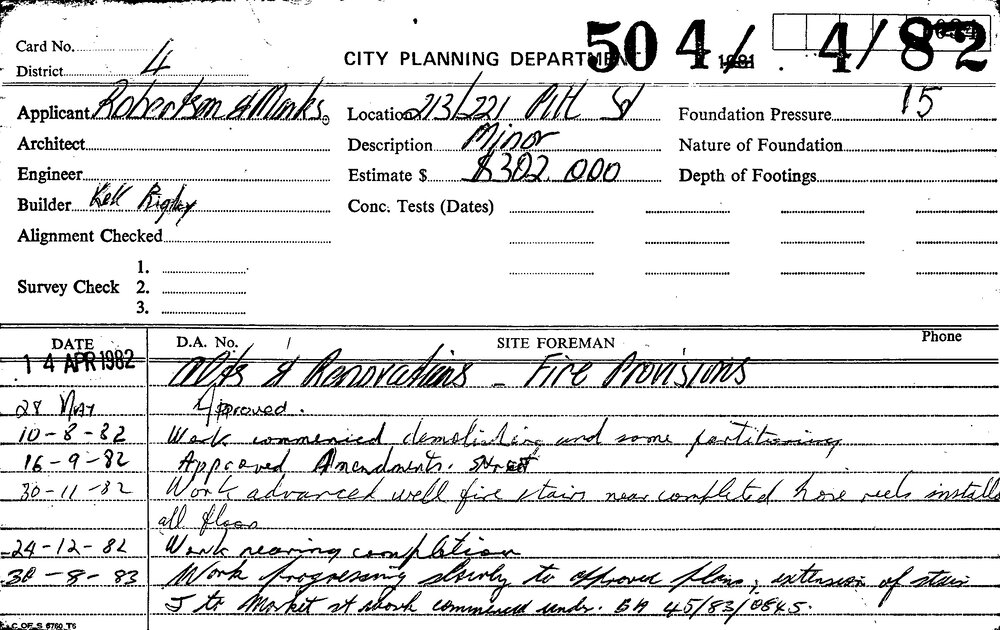 Card No.
District 4
CITY PLANNING DEPARTMENT 504/ 4/82
Applicant Robertson & Marks.
Location 213/221 Pitt St
Foundation Pressure 15
Architect
Description Minor
Nature of Foundation
Engineer
Estimate $ $302.000
Depth of Footings
Builder Kell Rigby
Conc. Tests (Dates)
Alignment Checked
1.
Survey Check 2.
3.
DATE D.A. No. SITE FOREMAN Phone
14 APR 1982 Alts & Renovations - Fire Provisions
28 May Approved.
10-8-82 Work commenced demolishing and some partitioning
16-9-82 Approved Amendments.
30-11-82 Work advanced well fire stairs near completed hose reels install
all floors
24-12-82 Work nearing completion
30-8-83 Work progressing slowly to approved plans, extension of stair
5 to Market st work commenced under. BA 45/83/0845.
C_OF_S_6760_T6